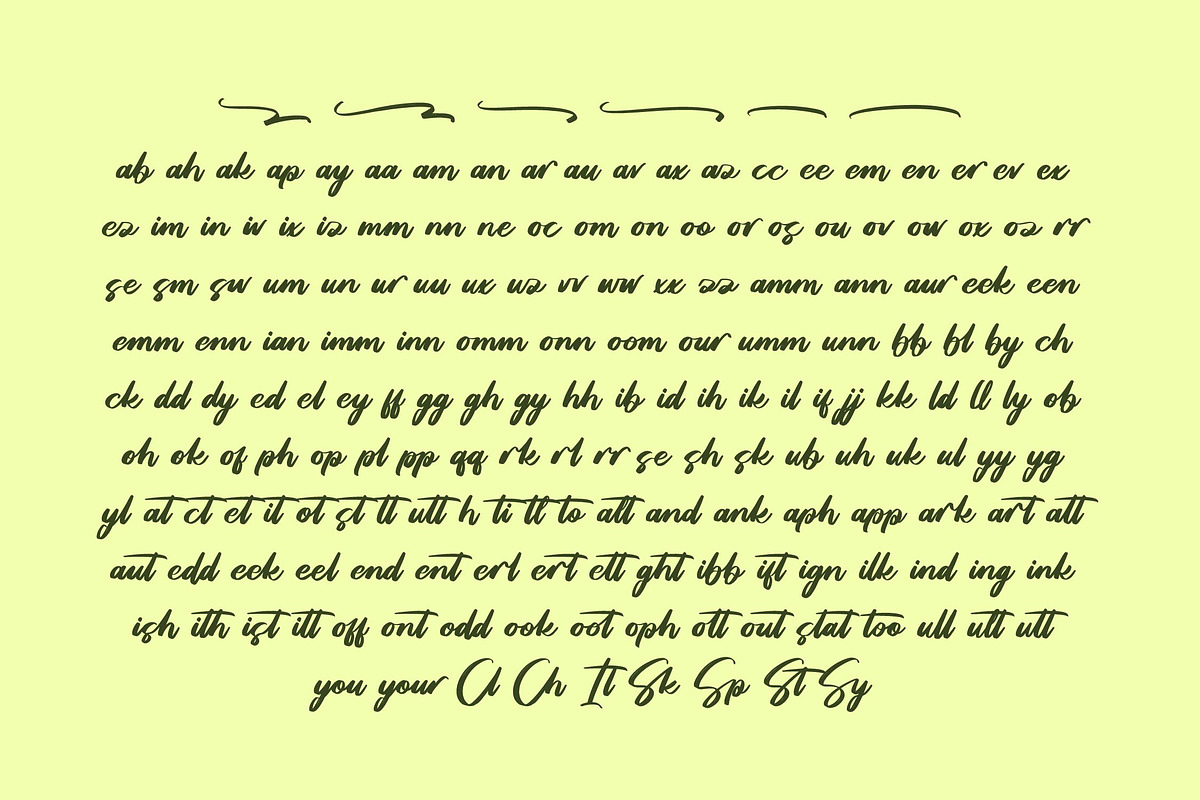 ab ah ak ap ay aa am an ar au av ax az cc ee em en er ev ex
ez im in iv ix iz mm nn ne oc om on oo or os ou ov ow ox oz rr
se sm sw um un ur uu ux uz vv ww xx zz amm ann aur eek een
emm enn ian imm inn omm onn oom our umm unn bb bl by ch
ck dd dy ed el ey ff gg gh gy hh ib id ih ik il if jj kk ld ll ly ob
oh ok of ph op pl pp qq rk rl rr se sh sk ub uh uk ul yy yg
yl at ct et it ot st tt utt th ti tl to alt and ank aph app ark art att
aut edd eek eel end ent erl ert ett ght ibb ift ign ilk ind ing ink
ish ith ist itt off ont odd ook oot oph ott out stat too ull ult utt
you your Cl Ch It Sk Sp St Sy